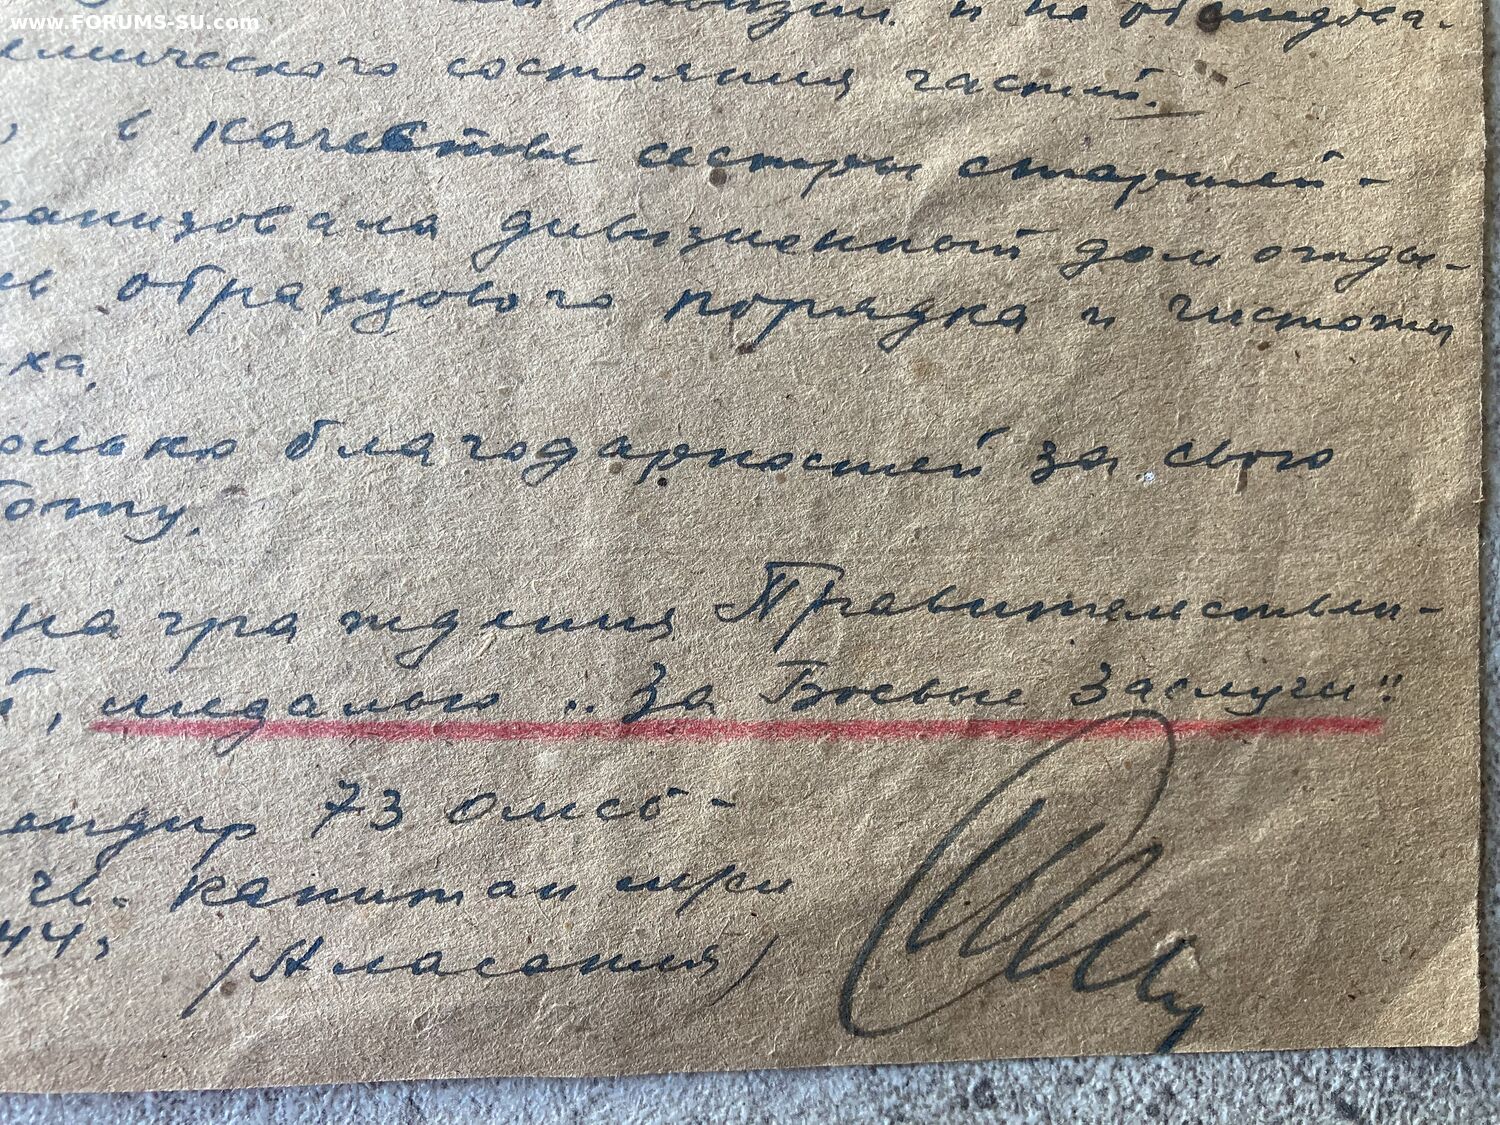 www.FORUMS-SU.com
дивизии и по обследова-
емического состояния частей.
, в качестве сестры старшей-
ганизовала дивизионный дом отды-
ев образцового порядка и чистоты
ха,
олько благодарностей за свою
боту.
награждения Правительствен-
й, медалью "За Боевые Заслуги".
андир 73 омсб-
гв. капитан м/сл
44 г
/Аласания/